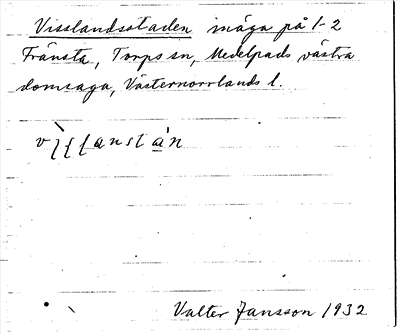 Visslandsstaden inäga på 1-2
Fränsta, Torps sn, Medelpads västra
domsaga, Västernorrlands l.
Valter Jansson 1932